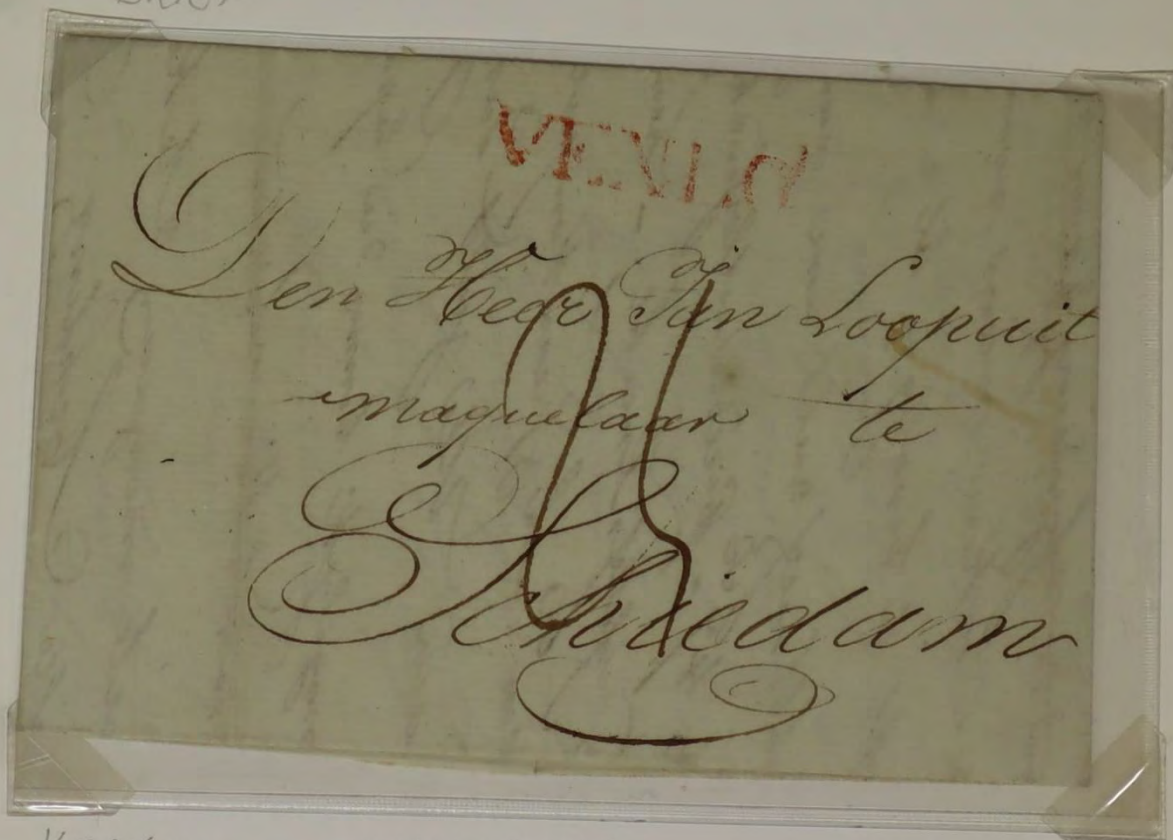 VENLO
Den Heer Jan Loopuit
maquelaar te
Schiedam